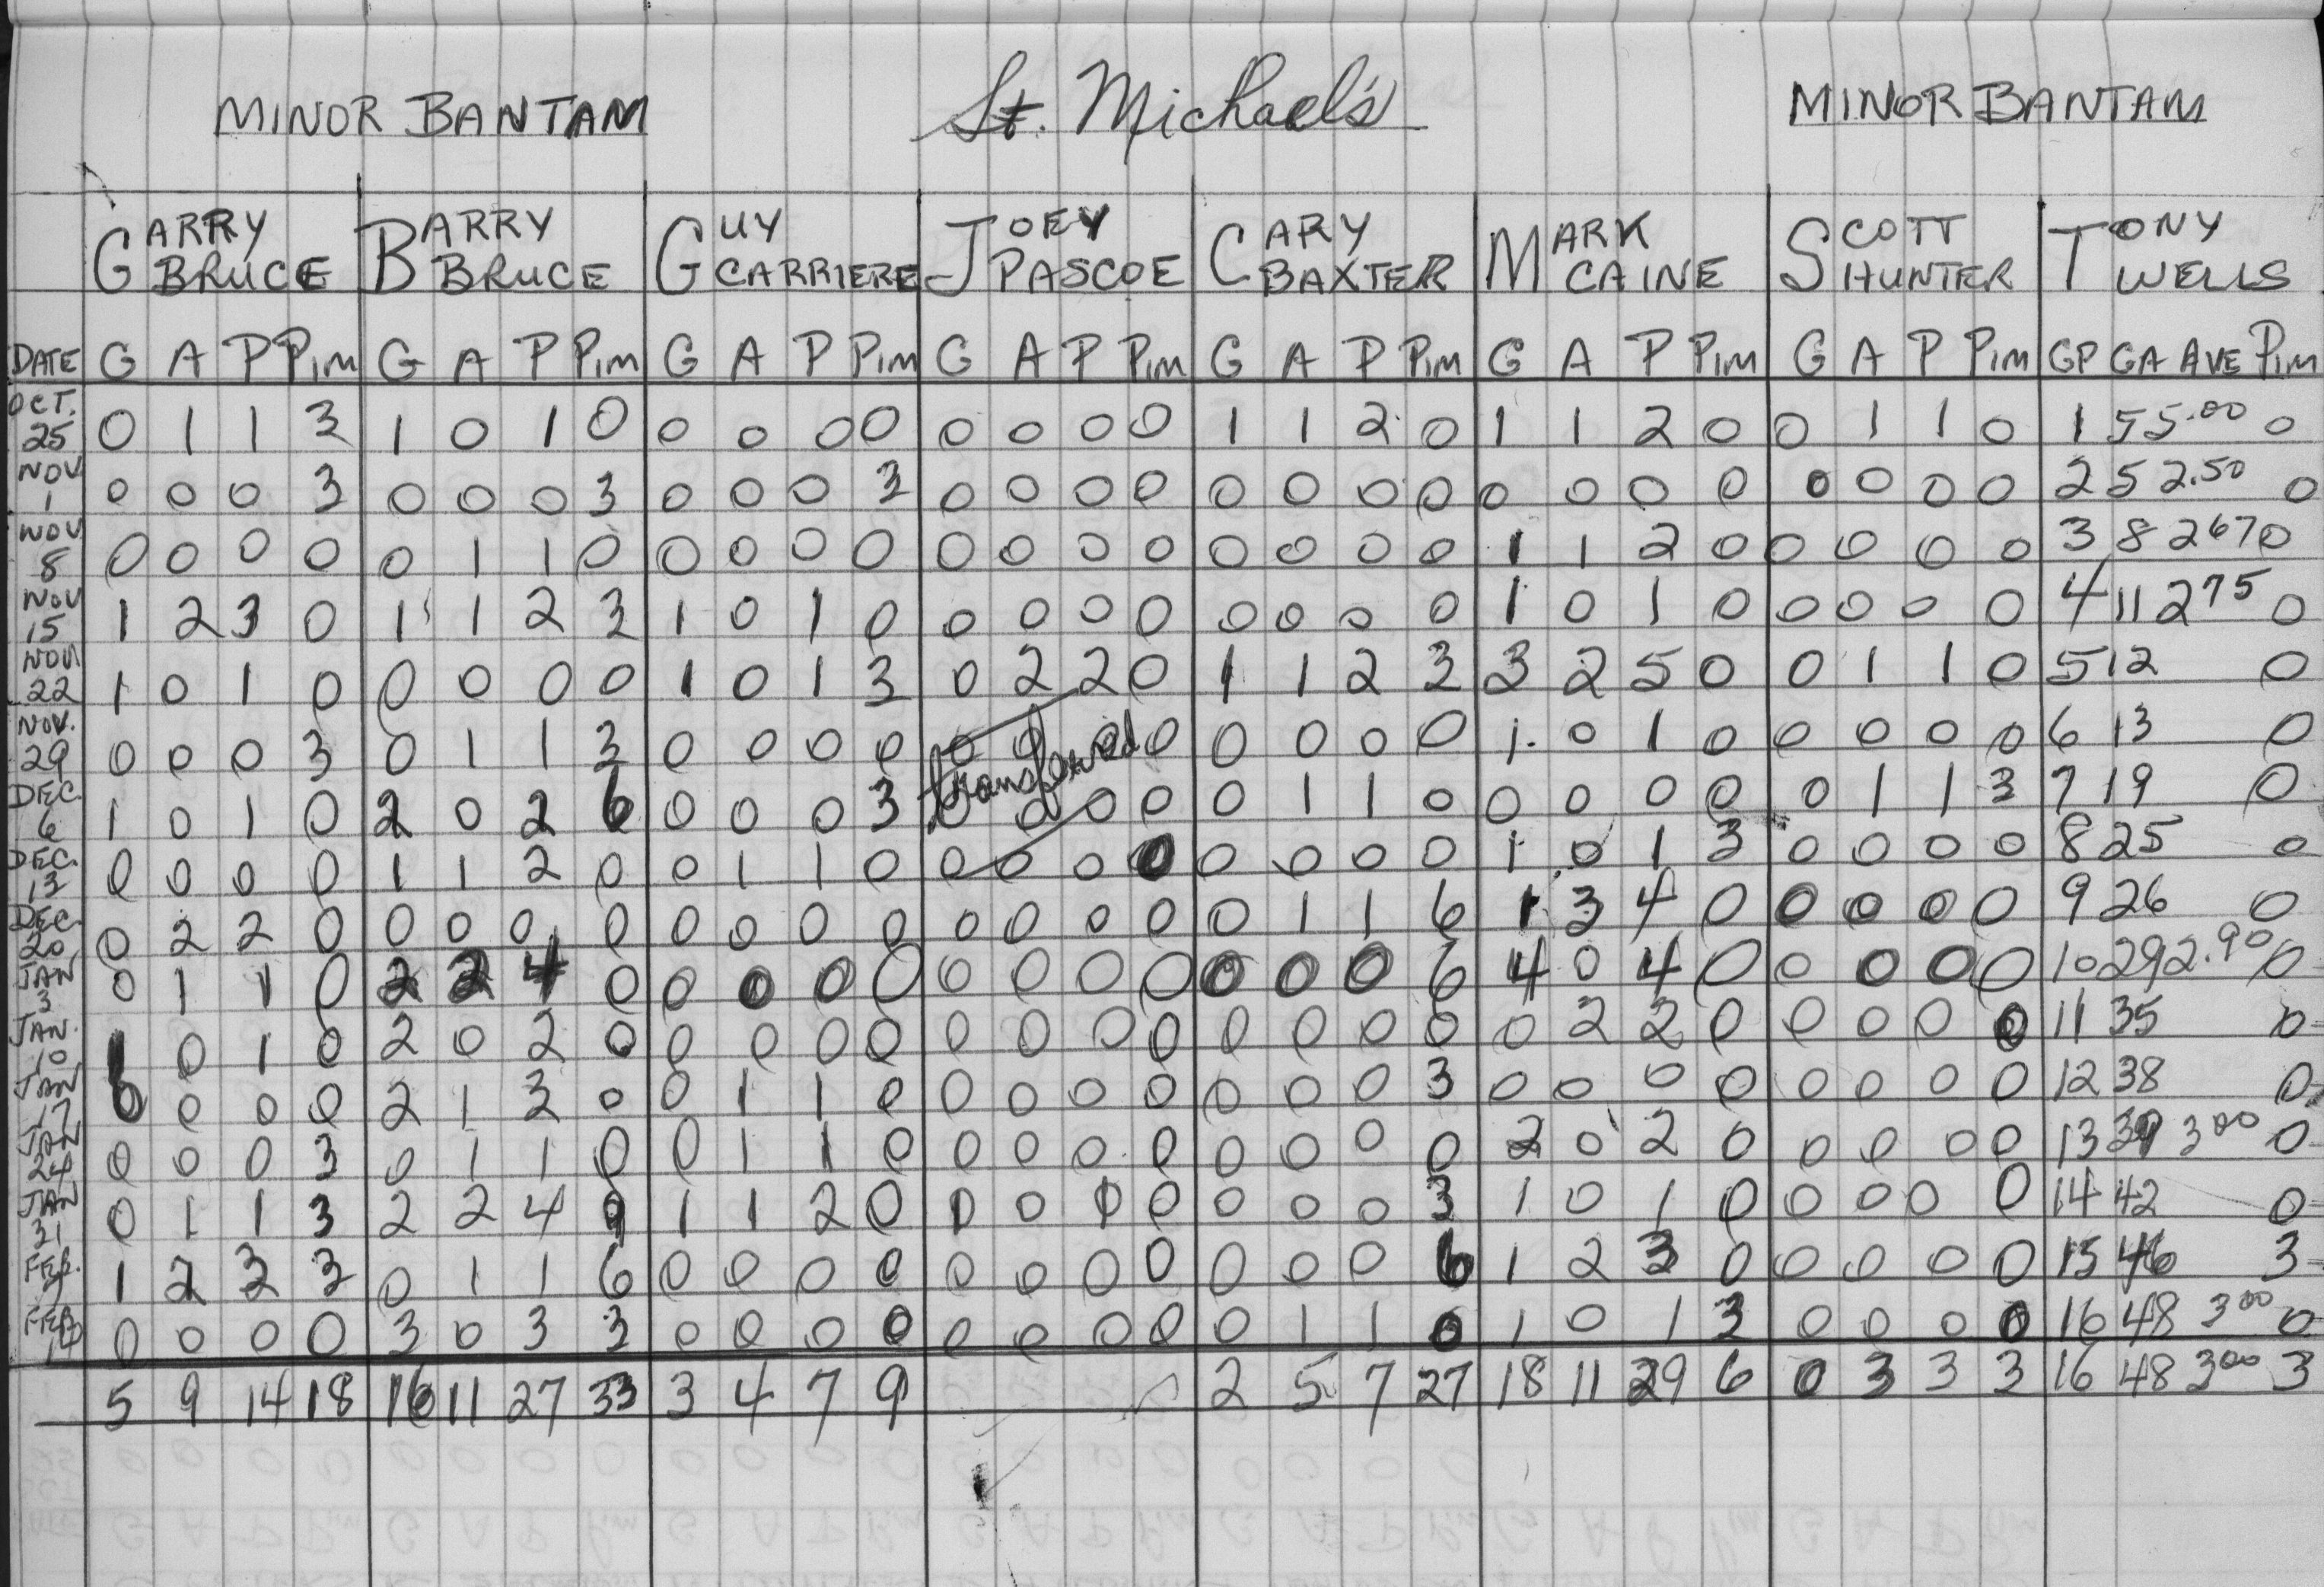 MINOR BANTAM St. Michael's MINOR BANTAM
GARRY BRUCE BARRY BRUCE GUY CARRIERE JOEY PASCOE CARY BAXTER MARK CAINE SCOTT HUNTER TONY WELLS
DATE G A P PIM G A P PIM G A P PIM G A P PIM G A P PIM G A P PIM G A P PIM GP GA AVE PIM
OCT. 25 0 1 1 3 1 0 1 0 0 0 0 0 0 0 0 0 1 1 2 0 1 1 2 0 0 1 1 0 1 5 5.00 0
NOV 1 0 0 0 3 0 0 0 3 0 0 0 3 0 0 0 0 0 0 0 0 0 0 0 0 0 0 0 0 2 5 2.50 0
NOV 8 0 0 0 0 0 1 1 0 0 0 0 0 0 0 0 0 0 0 0 0 1 1 2 0 0 0 0 0 3 8 267 0
NOV 15 1 2 3 0 1 1 2 3 1 0 1 0 0 0 0 0 0 0 0 0 1 0 1 0 0 0 0 0 4 11 275 0
NOV 22 1 0 1 0 0 0 0 0 1 0 1 3 0 2 2 0 1 1 2 3 3 2 5 0 0 1 1 0 5 12 0
NOV. 29 0 0 0 3 0 1 1 3 0 0 0 0 0 0 0 0 0 0 0 0 1 0 1 0 0 0 0 0 6 13 0
transferred
DEC. 6 1 0 1 0 2 0 2 6 0 0 0 3 0 0 0 0 0 1 1 0 0 0 0 0 0 1 1 3 7 19 0
DEC. 13 0 0 0 0 1 1 2 0 0 1 1 0 0 0 0 0 0 0 0 0 1 0 1 3 0 0 0 0 8 25 0
DEC. 20 0 2 2 0 0 0 0 0 0 0 0 0 0 0 0 0 0 1 1 6 1 3 4 0 0 0 0 0 9 26 0
JAN 3 0 1 1 0 2 2 4 0 0 0 0 0 0 0 0 0 0 0 0 6 4 0 4 0 0 0 0 0 10 29 2.90 0
JAN. 10 1 0 1 0 2 0 2 0 0 0 0 0 0 0 0 0 0 0 0 0 0 2 2 0 0 0 0 0 11 35 0
JAN 17 0 0 0 0 2 1 3 0 0 1 1 0 0 0 0 0 0 0 0 3 0 0 0 0 0 0 0 0 12 38 0
JAN 24 0 0 0 3 0 1 1 0 0 1 1 0 0 0 0 0 0 0 0 0 2 0 2 0 0 0 0 0 13 39 300 0
JAN 31 0 1 1 3 2 2 4 9 1 1 2 0 1 0 1 0 0 0 0 3 1 0 1 0 0 0 0 0 14 42 0
FEB. 1 2 3 3 0 1 1 6 0 0 0 0 0 0 0 0 0 0 0 6 1 2 3 0 0 0 0 0 15 46 3
FEB 14 0 0 0 0 3 0 3 3 0 0 0 0 0 0 0 0 0 1 1 0 1 0 1 3 0 0 0 0 16 48 300 0
5 9 14 18 16 11 27 33 3 4 7 9 2 5 7 27 18 11 29 6 0 3 3 3 16 48 300 3